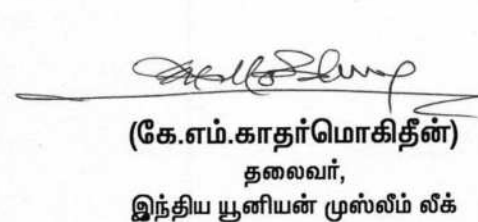 (கே.எம்.காதர்மொகிதீன்)
தலைவர்,
இந்திய யூனியன் முஸ்லீம் லீக்